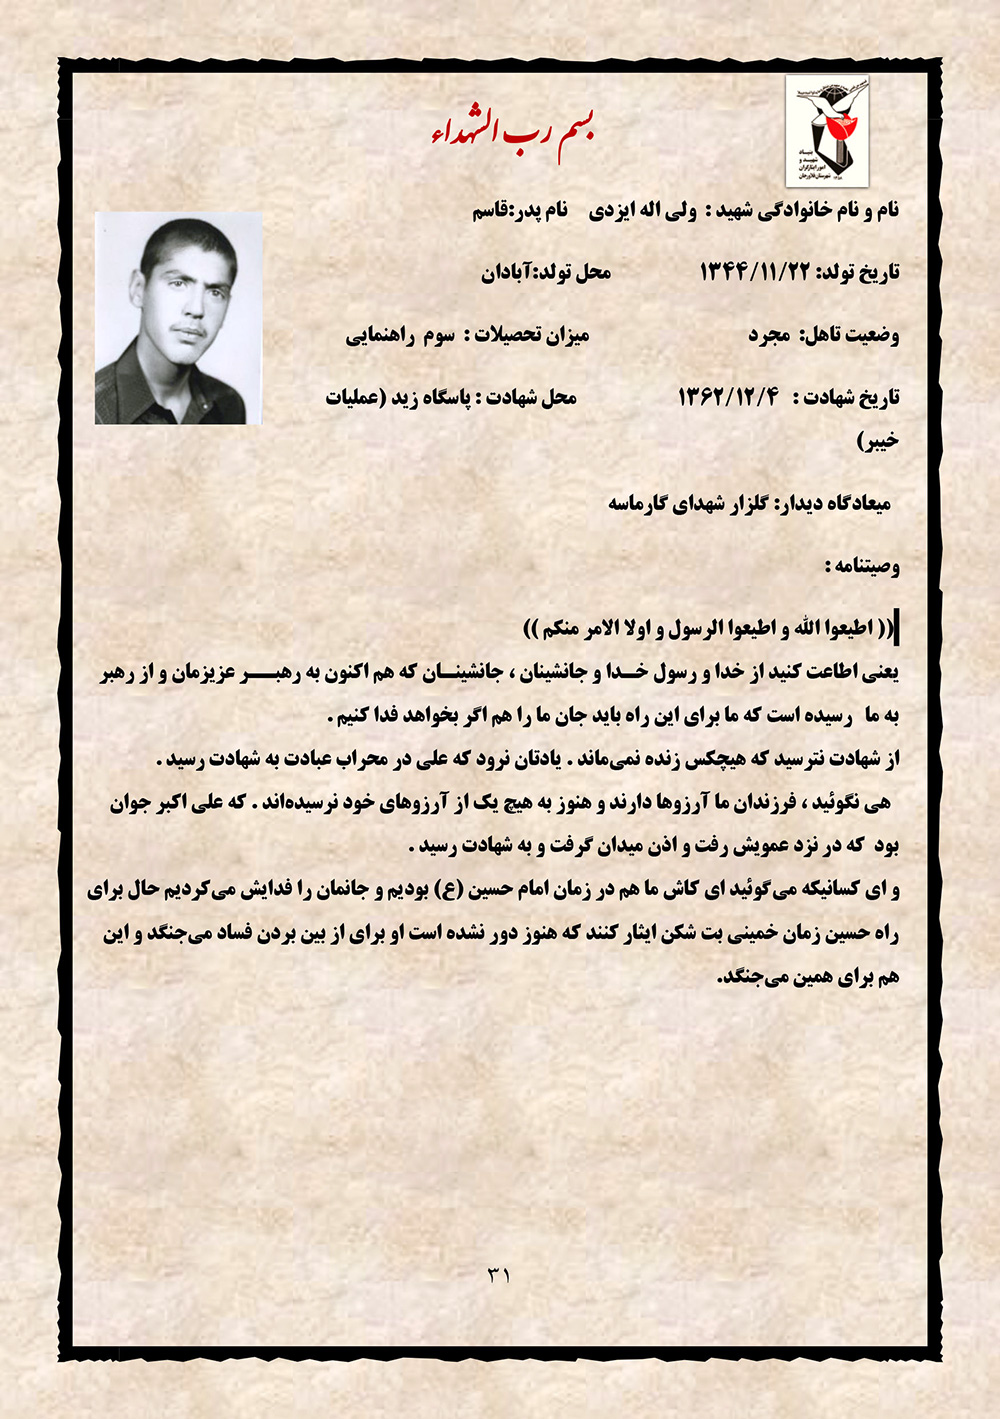 بسم رب الشهداء
بنیاد
شهید و
امور ایثارگران
شهرستان فلاورجان
نام و نام خانوادگی شهید : ولی اله ایزدی نام پدر:قاسم
تاریخ تولد: ۱۳۴۴/۱۱/۲۲ محل تولد:آبادان
وضعیت تاهل: مجرد میزان تحصیلات : سوم راهنمایی
تاریخ شهادت : ۱۳۶۲/۱۲/۴ محل شهادت : پاسگاه زید (عملیات
خیبر)
میعادگاه دیدار: گلزار شهدای گارماسه
وصیتنامه :
(( اطیعوا الله و اطیعوا الرسول و اولا الامر منکم ))
یعنی اطاعت کنید از خدا و رسول خــدا و جانشینان ، جانشینــان که هم اکنون به رهبــــر عزیزمان و از رهبر
به ما رسیده است که ما برای این راه باید جان ما را هم اگر بخواهد فدا کنیم .
از شهادت نترسید که هیچکس زنده نمی‌ماند . یادتان نرود که علی در محراب عبادت به شهادت رسید .
هی نگوئید ، فرزندان ما آرزوها دارند و هنوز به هیچ یک از آرزوهای خود نرسیده‌اند . که علی اکبر جوان
بود که در نزد عمویش رفت و اذن میدان گرفت و به شهادت رسید .
و ای کسانیکه می‌گوئید ای کاش ما هم در زمان امام حسین (ع) بودیم و جانمان را فدایش می‌کردیم حال برای
راه حسین زمان خمینی بت شکن ایثار کنند که هنوز دور نشده است او برای از بین بردن فساد می‌جنگد و این
هم برای همین می‌جنگد.
۳۱